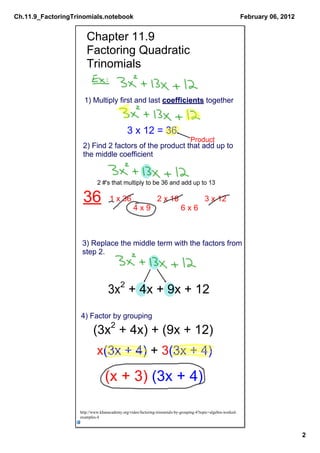 Ch.11.9_FactoringTrinomials.notebook
February 06, 2012
Chapter 11.9
Factoring Quadratic
Trinomials
Ex: 3x² + 13x + 12
1) Multiply first and last coefficients together
3x² + 13x + 12
3 x 12 = 36
Product
2) Find 2 factors of the product that add up to
the middle coefficient
3x² + 13x + 12
2 #'s that multiply to be 36 and add up to 13
36 1 x 36 2 x 18 3 x 12
4 x 9 6 x 6
3) Replace the middle term with the factors from
step 2.
3x² + 13x + 12
3x² + 4x + 9x + 12
4) Factor by grouping
(3x² + 4x) + (9x + 12)
x(3x + 4) + 3(3x + 4)
(x + 3) (3x + 4)
http://www.khanacademy.org/video/factoring-trinomials-by-grouping-4?topic=algebra-worked-
examples-4
2